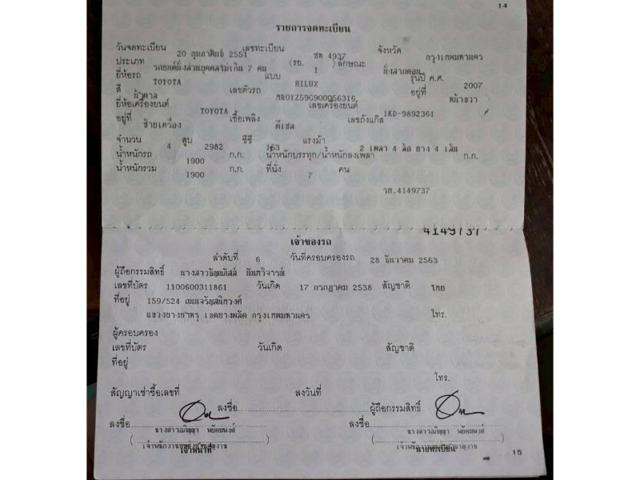 14
รายการจดทะเบียน
วันจดทะเบียน 20 กุมภาพันธ์ 2551 เลขทะเบียน ชต 4937 จังหวัด กรุงเทพมหานคร
ประเภท รถยนต์นั่งส่วนบุคคลไม่เกิน 7 คน (รย. 1) ลักษณะ นั่งสามตอน
ยี่ห้อรถ TOYOTA แบบ HILUX รุ่นปี ค.ศ. 2007
สี น้ำตาล เลขตัวรถ MR0YZ59G900056316 อยู่ที่ หน้าขวา
ยี่ห้อเครื่องยนต์ TOYOTA เลขเครื่องยนต์ 1KD-9892361
อยู่ที่ ซ้ายเครื่อง เชื้อเพลิง ดีเซล เลขถังแก๊ส
จำนวน 4 สูบ 2982 ซีซี 163 แรงม้า 2 เพลา 4 ล้อ ยาง 4 เส้น
น้ำหนักรถ 1900 ก.ก. น้ำหนักบรรทุก/น้ำหนักลงเพลา ก.ก.
น้ำหนักรวม 1900 ก.ก. ที่นั่ง 7 คน
วส.4149737
4149737
เจ้าของรถ
ลำดับที่ 6 วันที่ครอบครองรถ 28 ธันวาคม 2563
ผู้ถือกรรมสิทธิ์ นางสาว
เลขที่บัตร 1100600311861 วันเกิด 17 กรกฎาคม 2538 สัญชาติ ไทย
ที่อยู่ 159/524 ถนนจรัญสนิทวงศ์
แขวงบางอ้อ เขตบางพลัด กรุงเทพมหานคร โทร.
ผู้ครอบครอง
เลขที่บัตร วันเกิด สัญชาติ
ที่อยู่
โทร.
สัญญาเช่าซื้อเลขที่ ลงวันที่
ลงชื่อ ผู้ถือกรรมสิทธิ์
ลงชื่อ ลงชื่อ
เจ้าหน้าที่ นายทะเบียน
15